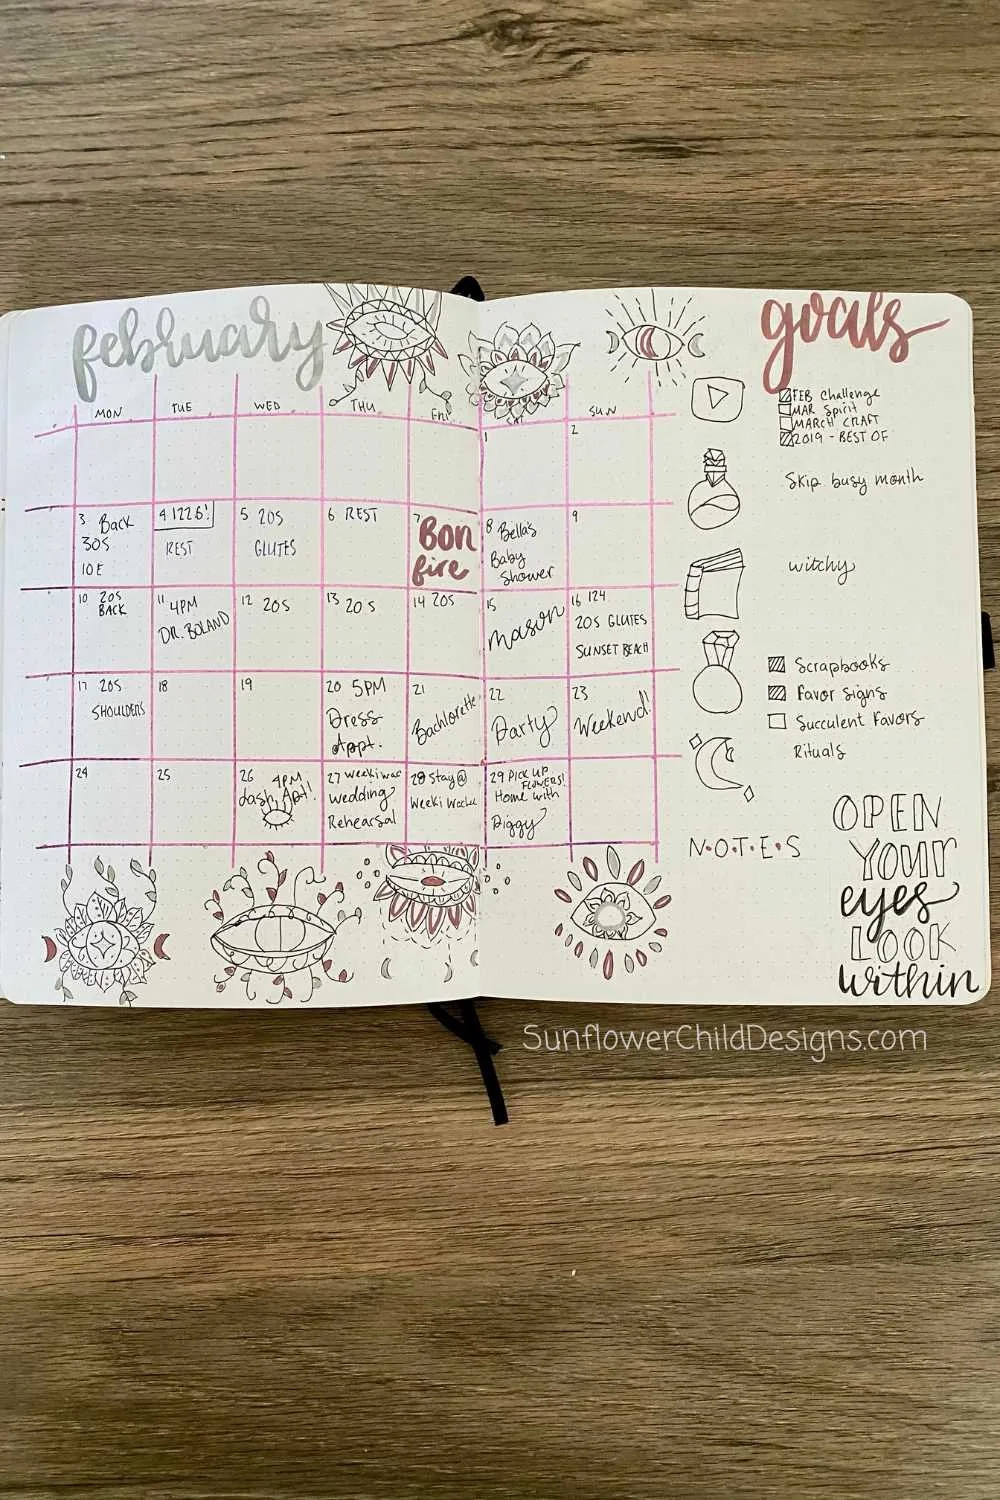 february
goals
MON TUE WED THU Fri SAT SUN
1
2
3 Back
30S
10E
4 1226!
REST
5 20S
GLUTES
6 REST
7
Bon
fire
8 Bella's
Baby
Shower
9
10 20S
BACK
11 4PM
DR. BOLAND
12 20S
13 20S
14 20S
15
mason
16 124
20S GLUTES
SUNSET BEACH
17 20S
SHOULDERS
18
19
20 5PM
Dress
Appt.
21
Bachlorette
22
Party
23
Weekend!
24
25
26 4PM
Lash Apt!
27 weeki wac
Wedding
Rehearsal
28 Stay@
Weeki Wache
29 PICK UP
FLOWERS!
Home with
Diggy
FEB Challenge
MAR Spirit
MARCH CRAFT
2019 - BEST OF
Skip busy month
witchy
Scrapbooks
Favor signs
Succulent Favors
Rituals
N•O•T•E•S
OPEN
YOUR
eyes
LOOK
within
SunflowerChildDesigns.com